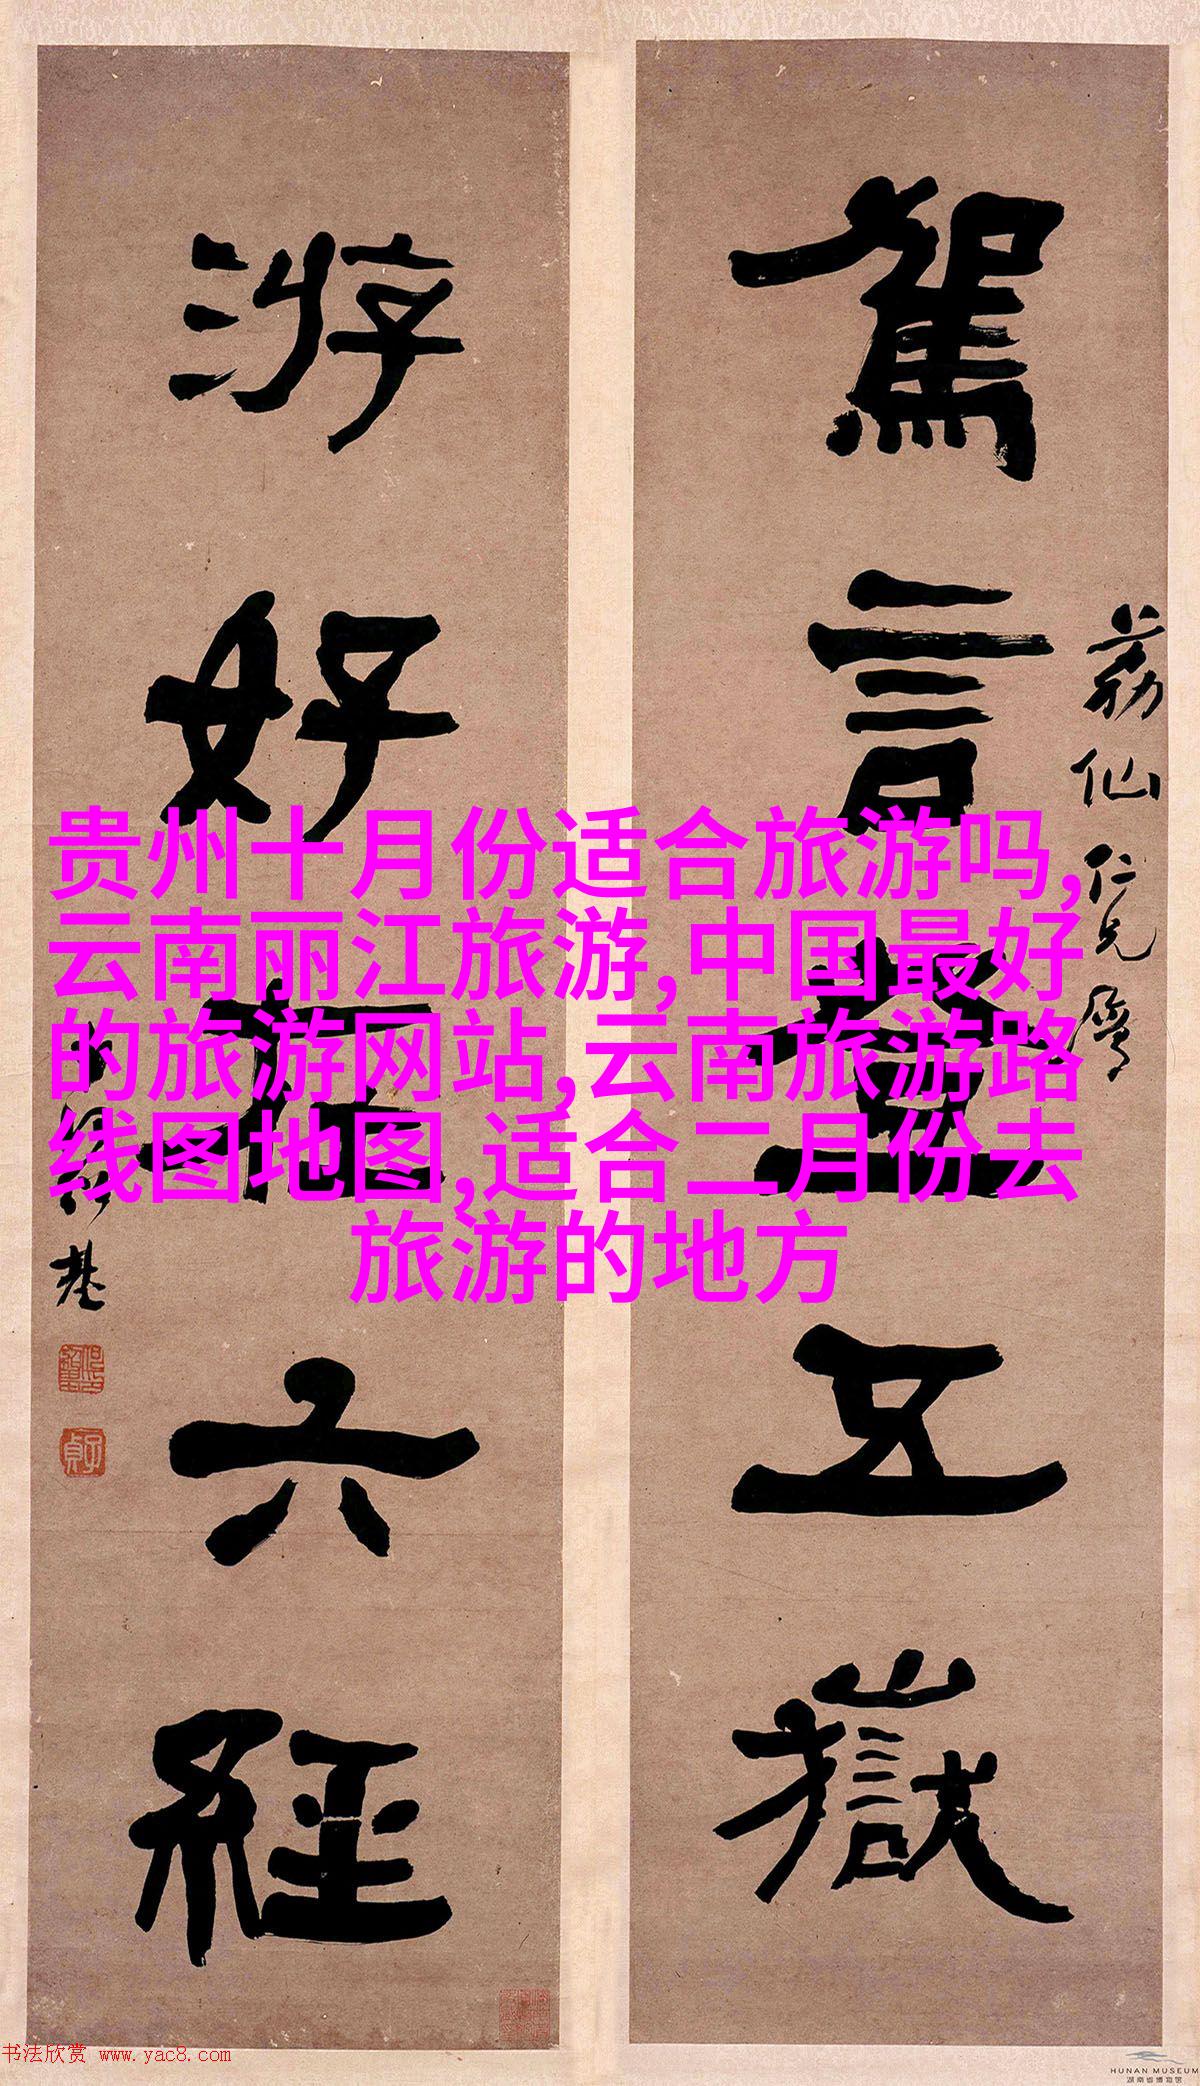 駕言登五嶽
荔仙仁兄屬
游好在六經
何紹基
贵州十月份适合旅游吗,
云南丽江旅游,中国最好
的旅游网站,云南旅游路
线图地图,适合二月份去
旅游的地方
子貞
书法欣赏 www.yac8.com
HUNAN MUSEUM
湖南省博物馆